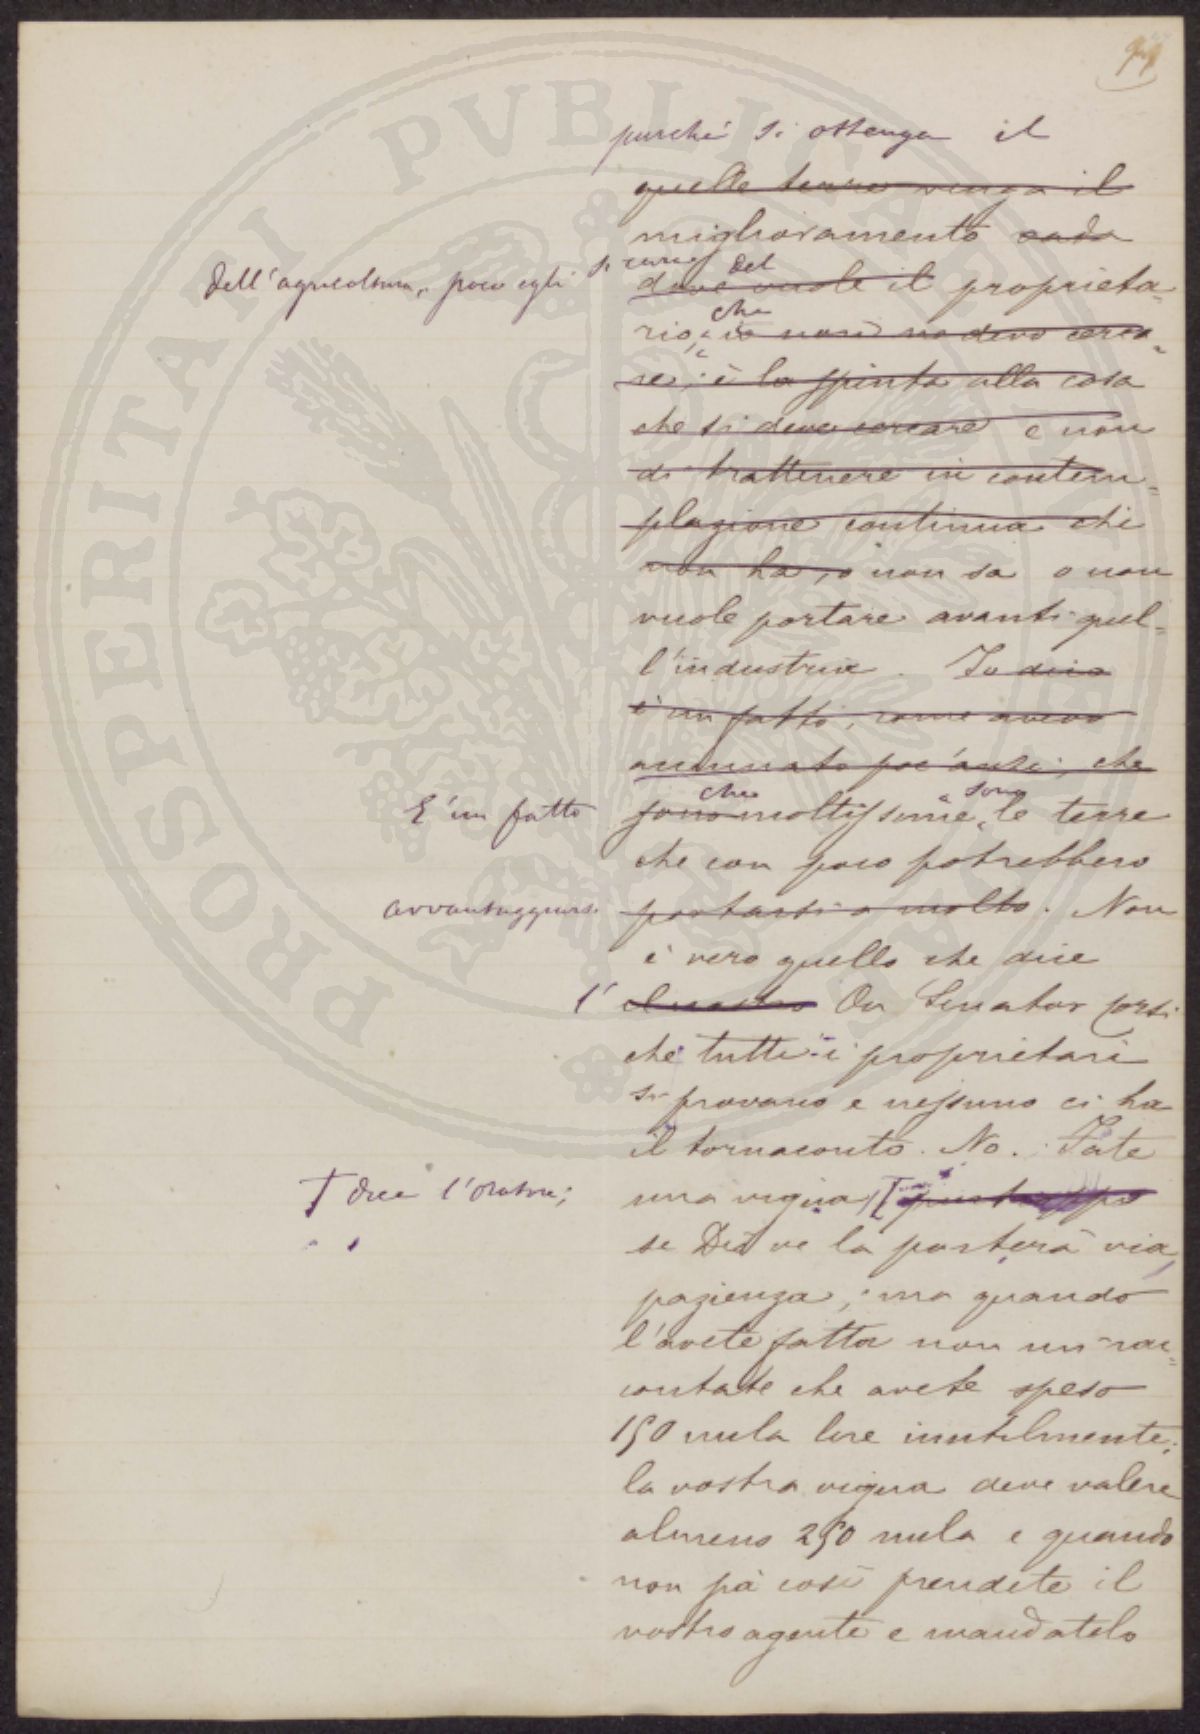 purchè si ottenga il
quelle terre venga il
miglioramento vada
dell'agricoltura, poco egli si cura del
dove vuole il proprieta=
che
rio, io non devo cerca=
re; è la spinta alla cosa
che si deve cercare e non
di trattenere in contem=
plazione continua chi
non ha, o non sa o non
vuole portare avanti quel=
l'industria. Io dico
è un fatto, come avevo
annunato poc'anzi, che
E' un fatto che sono
sono moltissime le terre
che con poco potrebbero
avvantaggiarsi portarsi a molto. Non
è vero quello che dice
l' il nostro On Senator Corsi
che tutti i proprietari
si provano e nessuno ci ha
il tornaconto. No. Fate
dice l'oratore;
una vigna,
se Dio ve la porterà via,
pazienza, ma quando
l'avete fatta non mi rac=
contate che avete speso
150 mila lire inutilmente;
la vostra vigna deve valere
almeno 250 mila e quando
non fa così prendete il
vostro agente e mandatelo
PUBLICAE
PROSPERITATI